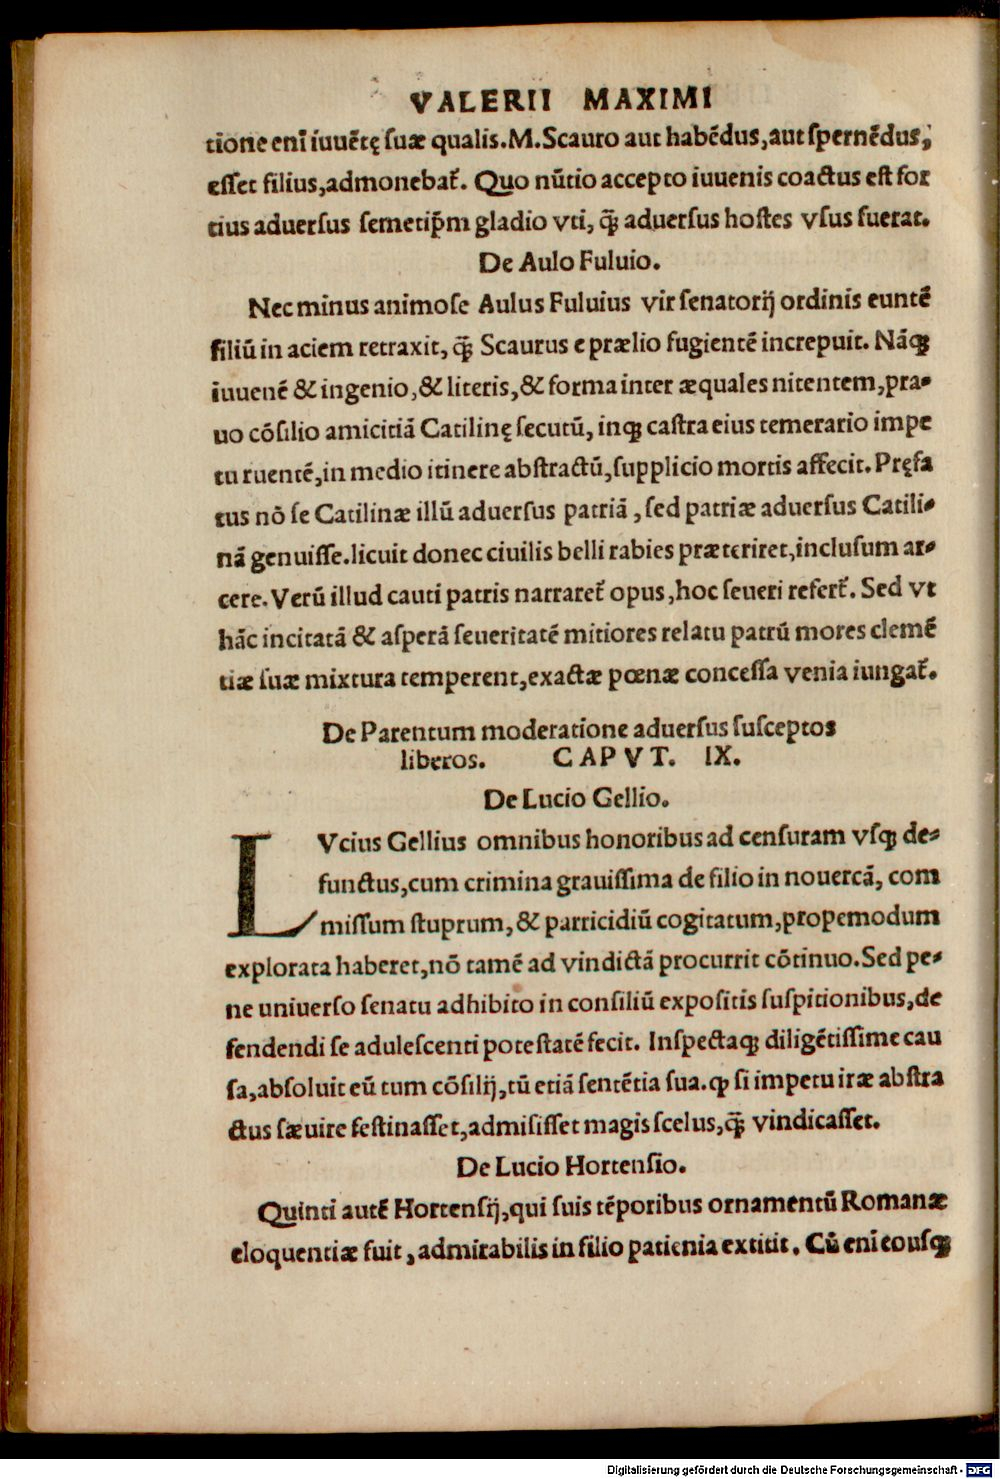 VALERII MAXIMI
tione enī iuuētę suæ qualis.M.Scauro aut habēdus,aut spernēdus,
esset filius,admonebat᷑. Quo nūtio accepto iuuenis coactus est for
tius aduersus semetip̄m gladio vti, q̄ꝫ aduersus hostes vsus fuerat.
De Aulo Fuluio.
Nec minus animose Aulus Fuluius vir senatorij ordinis euntē
filiū in aciem retraxit, q̄ꝫ Scaurus e prælio fugientē increpuit. Nāqꝫ
iuuenē & ingenio,& literis,& forma inter æquales nitentem,pra-
uo cōsilio amicitiā Catilinę secutū, inqꝫ castra eius temerario impe
tu ruentē,in medio itinere abstractū,supplicio mortis affecit. Pręfa
tus nō se Catilinæ illū aduersus patriā , sed patriæ aduersus Catili-
nā genuisse.licuit donec ciuilis belli rabies præteriret,inclusum ar-
cere. Verū illud cauti patris narraret᷑ opus,hoc seueri refert᷑. Sed vt
hāc incitatā & asperā seueritatē mitiores relatu patrū mores clemē
tiæ suæ mixtura temperent,exactæ pœnæ concessa venia iungat᷑.
De Parentum moderatione aduersus susceptos
liberos. CAPVT. IX.
De Lucio Gellio.
LVcius Gellius omnibus honoribus ad censuram vsqꝫ de-
functus,cum crimina grauissima de filio in nouercā, com
missum stuprum, & parricidiū cogitatum,propemodum
explorata haberet,nō tamē ad vindictā procurrit cōtinuo. Sed pe-
ne uniuerso senatu adhibito in consiliū expositis suspitionibus,de
fendendi se adulescenti potestatē fecit. Inspectaqꝫ diligētissime cau
sa,absoluit eū tum cōsilij,tū etiā sentētia sua.ꝙ si impetu iræ abstra
ctus sæuire festinasset,admisisset magis scelus,q̄ꝫ vindicasset.
De Lucio Hortensio.
Quinti autē Hortensij,qui suis tēporibus ornamentū Romanæ
eloquentiæ fuit , admirabilis in filio patienia extitit. Cū enī eousqꝫ
Digitalisierung gefördert durch die Deutsche Forschungsgemeinschaft - DFG